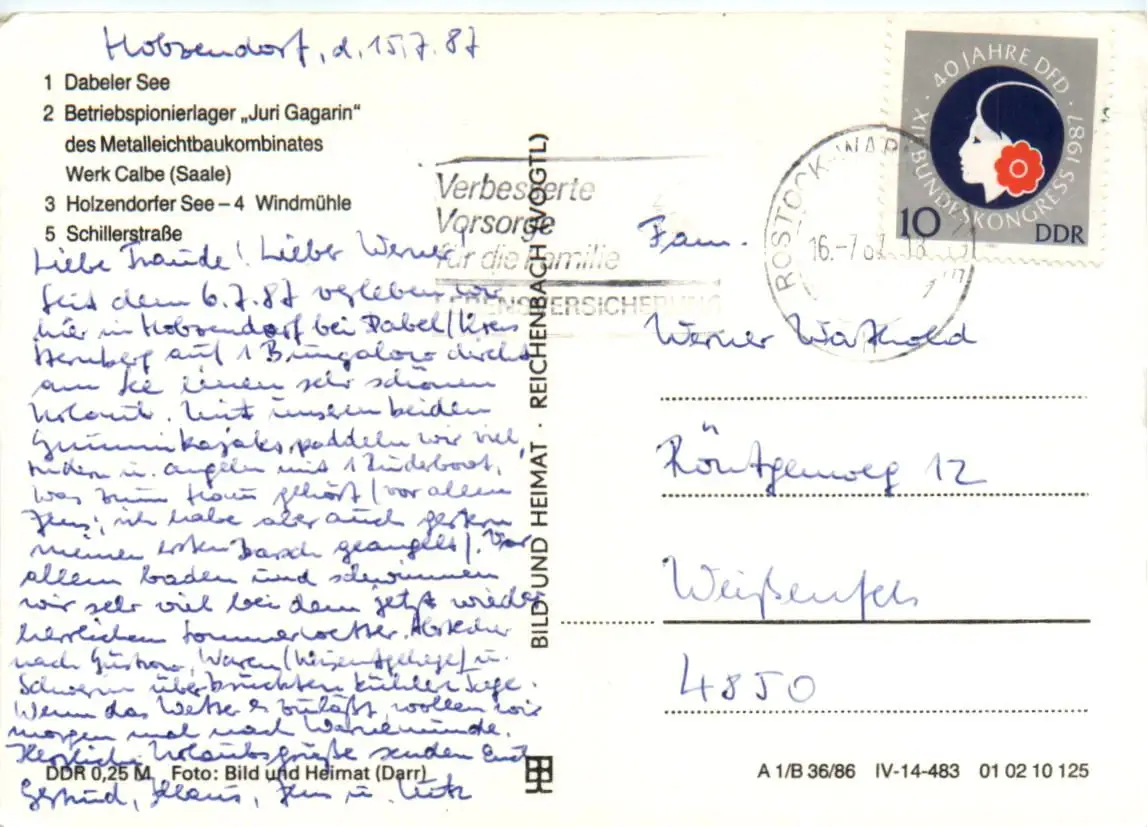 Holzendorf, d. 15.7.87
1 Dabeler See
2 Betriebspionierlager „Juri Gagarin“
des Metalleichtbaukombinates
Werk Calbe (Saale)
3 Holzendorfer See – 4 Windmühle
5 Schillerstraße
Liebe Traude! Lieber Werner!
Seit dem 6.7.87 verleben wir
hier in Holzendorf bei Dabel (Kreis
Sternberg auf 1 Bungalow direkt
am See einen sehr schönen
Urlaub. Mit unseren beiden
Gummikajaks paddeln wir viel,
rudern u. angeln mit 1 Ruderboot,
was zum Haus gehört (vor allem
Jens; ich habe aber auch gestern
meinen ersten Barsch geangelt). Vor
allem baden und schwimmen
wir sehr viel bei dem jetzt wieder
herrlichen Sommerwetter. Abstecher
nach Güstrow, Waren (Wisentgehege) u.
Schwerin überbrückten kühlere Tage.
Wenn das Wetter es zuläßt, wollen wir
morgen mal nach Warnemünde.
Herzliche Urlaubsgrüße senden Euch
Gertrud, Klaus, Jens u. Lutz
DDR 0,25 M Foto: Bild und Heimat (Darr)
BILD UND HEIMAT · REICHENBACH (VOGTL)
Verbesserte
Vorsorge
für die Familie
LEBENSVERSICHERUNG
ROSTOCK-WAR
16.-7.87 18
40 JAHRE DFD · 1987
XII. BUNDESKONGRESS
10
DDR
Fam.
Werner
Röntgenweg 12
Weißenfels
4850
A 1/B 36/86 IV-14-483 01 02 10 125